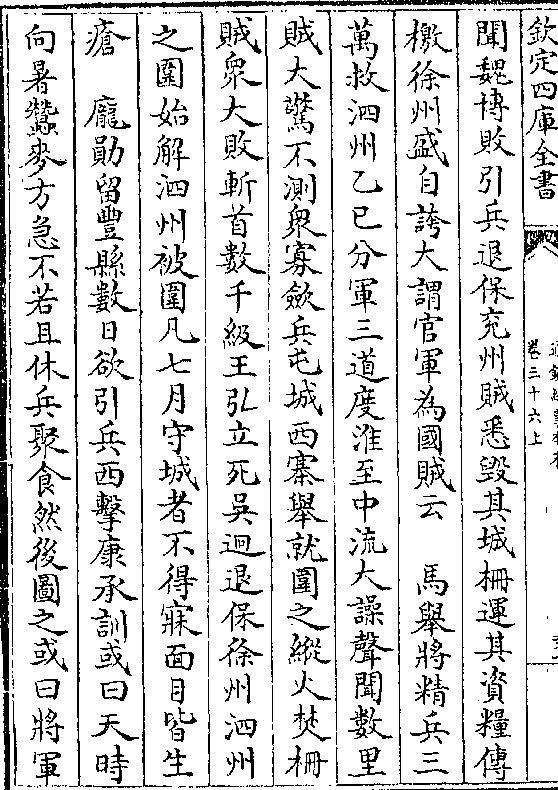 欽定四庫全書
卷三十六上
聞魏博敗引兵退保兖州賊悉毁其城柵運其資糧傳
檄徐州盛自誇大謂官軍為國賊云　馬舉將精兵三
萬救泗州乙已分軍三道度淮至中流大譟聲聞數里
賊大驚不測衆寡歛兵屯城西寨舉就圍之縱火焚柵
賊衆大敗斬首數千級王弘立死吳迥退保徐州泗州
之圍始解泗州被圍凡七月守城者不得寐面目皆生
瘡　龐勛留豐縣數日欲引兵西擊康承訓或曰天時
向暑蠶麥方急不若且休兵聚食然後圖之或曰將軍